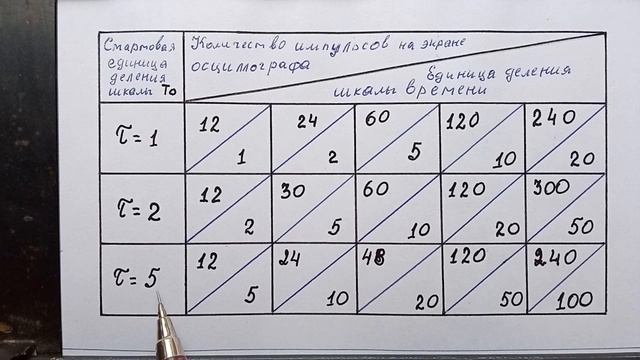 Стартовая
единица
деления
шкалы То
Количество импульсов на экране
осциллографа
Единица деления
шкалы времени
τ = 1
12 1
24 2
60 5
120 10
240 20
τ = 2
12 2
30 5
60 10
120 20
300 50
τ = 5
12 5
24 10
48 20
120 50
240 100